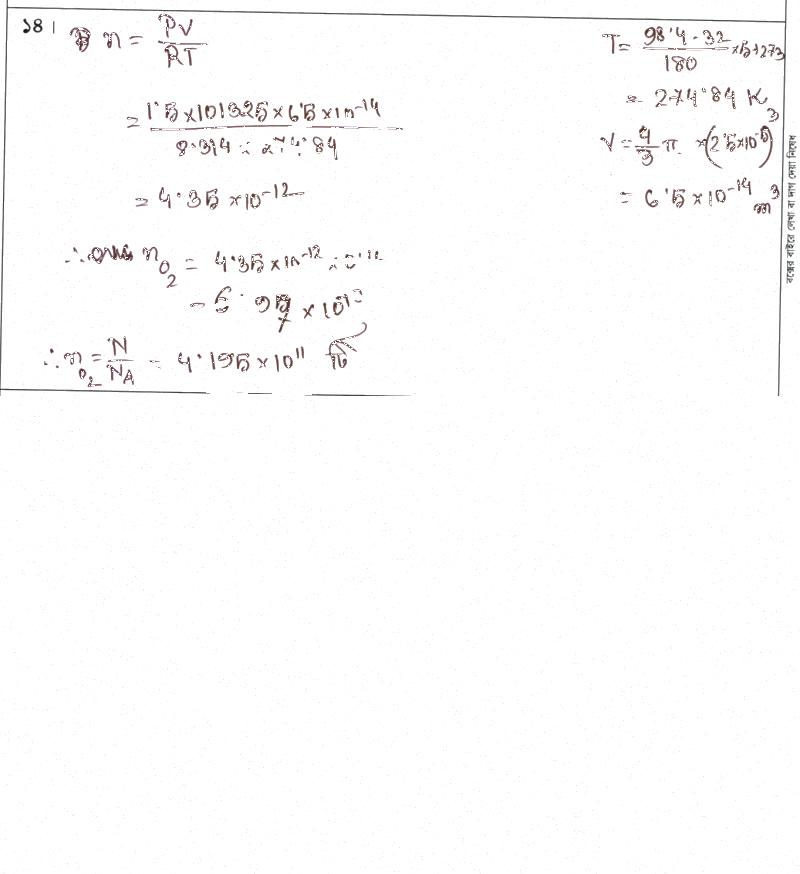 ১৪।
n = PV/RT
= 1.5×101325×6.5×10^-14 / 8.314 × 274.84
= 4.35×10^-12
∴ n_O2 = 4.35×10^-12 ×
∴ n_O2 = N/N_A = 4.195×10^11 টি
T = 98.4-32/180 ×5+273
= 274.84 K
V = 4/3 π ×(2.5×10^-5)^3
= 6.5×10^-14 m^3
বক্সের বাইরে লেখা বা দাগ দেয়া নিষেধ